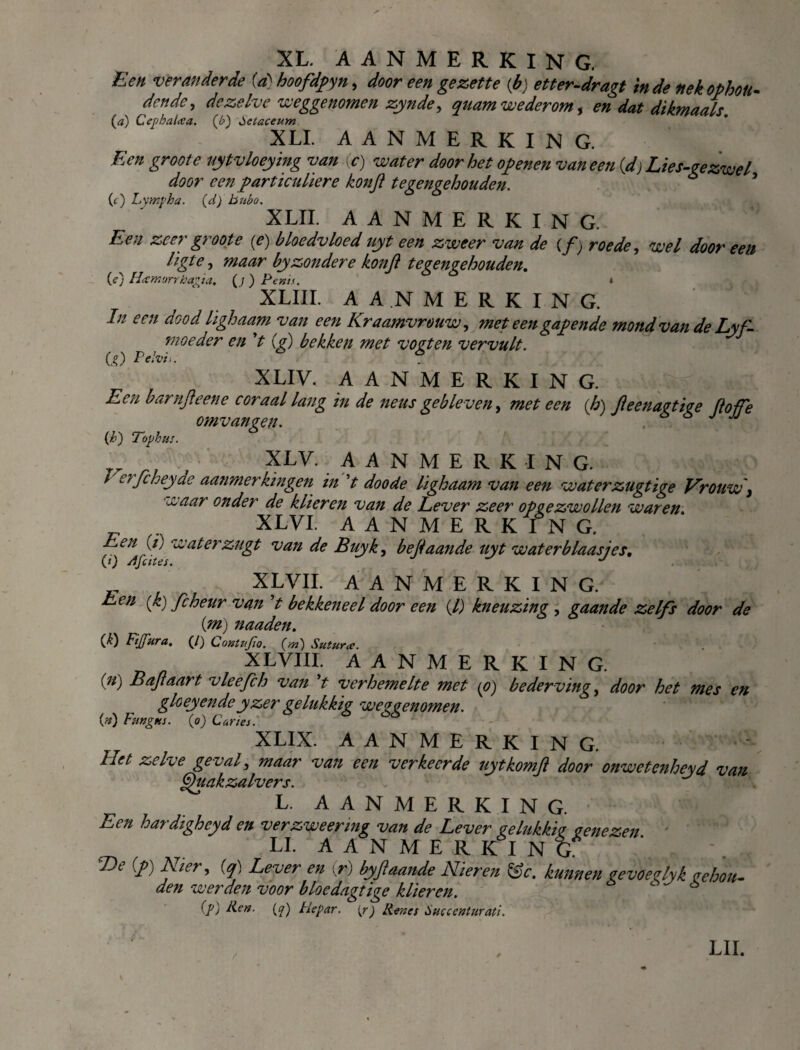 XL. AANMERKING.
Een veranderde (a) hoofdpyn, door een gezette (b) etter-dragt in de nek ophou-
dende, dezelve weggenomen zynde, quam wederom, en dat dikmaals.
(a) Cephalæa. (b) Setaceum
XLI. AANMERKING.
Een groote uytvloeying van (c) water door het openen van een (d) Lies-gezwel,
door een particuliere konst tegengehouden.
(c) Lympha. (d) Bubo.
XLII. AANMERKING.
Een zeer groote (e) bloedvloed uyt een zweer van de (f) roede, wel door een
ligte, maar byzondere konst tegengehouden.
(e) Hæmorrhagia. (f) Penis.
XLIII. AANMERKING.
In een dood lighaam van een Kraamvrouw, met een gapende mond van de Lyf-
moeder en 't (g) bekken met vogten vervult.
(g) Pelvis.
XLIV. AANMERKING.
Een barnsteene coraal lang in de neus gebleven, met een (h) steenagtige stoffe
omvangen.
(h) Tophus.
XLV. AANMERKING.
Verscheyde aanmerkingen in 't doode lighaam van een waterzugtige Vrouw,
waar onder de klieren van de Lever zeer opgezwollen waren.
XLVI. AANMERKING.
Een (i) waterzugt van de Buyk, bestaande uyt waterblaasjes.
(i) Ascites.
XLVII. AANMERKING.
Een (k) scheur van 't bekkeneel door een (l) kneuzing, gaande zelfs door de
(m) naaden.
(k) Fissura. (l) Contusio. (m) Suturæ.
XLVIII. AANMERKING.
(n) Bastaart vleesch van 't verhemelte met (o) bederving, door het mes en
gloeyende yzer gelukkig weggenomen.
(n) Fungus. (o) Caries.
XLIX. AANMERKING.
Het zelve geval, maar van een verkeerde uytkomst door onwetenheyd van
Quakzalvers.
L. AANMERKING.
Een hardigheyd en verzweering van de Lever gelukkig genezen.
LI. AANMERKING.
De (p) Nier, (q) Lever en (r) bystaande Nieren &c. kunnen gevoeglyk gehou-
den werden voor bloedagtige klieren.
(p) Ren. (q) Hepar. (r) Renes Succenturati.
LII.